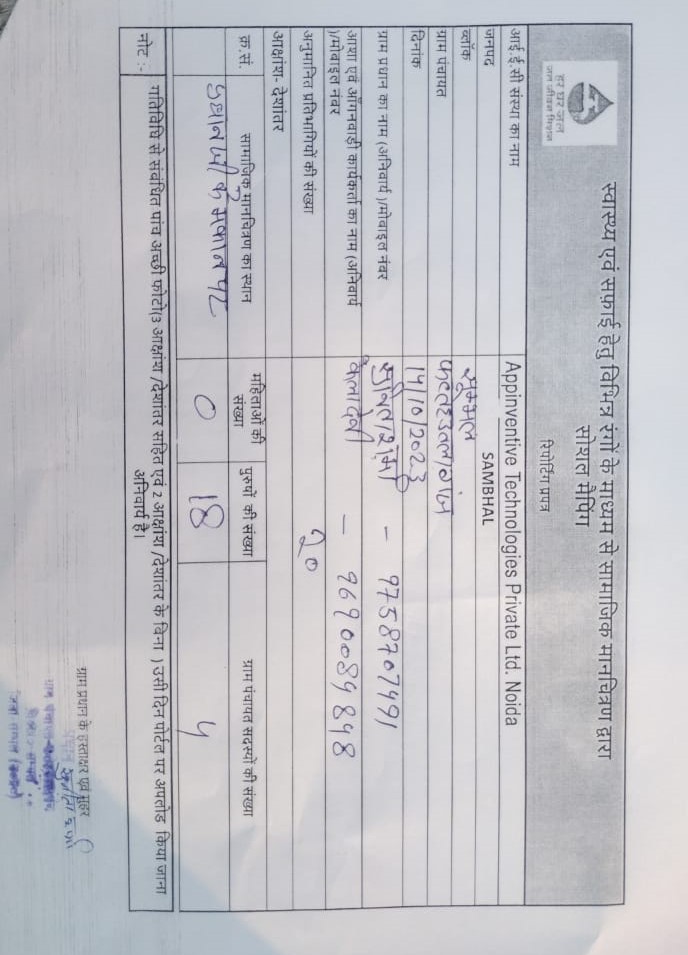 हर घर जल
जल जीवन मिशन
स्वास्थ्य एवं सफ़ाई हेतु विभिन्न रंगों के माध्यम से सामाजिक मानचित्रण द्वारा
सोशल मैपिंग
रिपोर्टिंग प्रपत्र
आई.ई.सी संस्था का नाम Appinventive Technologies Private Ltd. Noida
जनपद SAMBHAL
ब्लॉक सम्भल
ग्राम पंचायत
दिनांक 14/10/2023
ग्राम प्रधान का नाम (अनिवार्य )/मोबाइल नंबर - 9758707491
आशा एवं आँगनवाड़ी कार्यकर्ता का नाम (अनिवार्य कैलादेवी - 9690089898
)/मोबाइल नंबर
अनुमानित प्रतिभागियों की संख्या 20
आक्षांश- देशांतर
क्र.सं. सामाजिक मानचित्रण का स्थान महिलाओं की संख्या पुरुषों की संख्या ग्राम पंचायत सदस्यों की संख्या
प्रधान जी के मकान पर 0 18 4
नोट :- गतिविधि से संबंधित पांच अच्छी फोटो(3 आक्षांश /देशांतर सहित एवं 2 आक्षांश /देशांतर के बिना ) उसी दिन पोर्टल पर अपलोड किया जाना
अनिवार्य है।
ग्राम प्रधान के हस्ताक्षर एवं मुहर